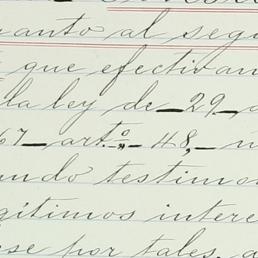 uanto al segu
que efectivam
la ley de 29 a
67 art.º 48, n
ando testimo
gítimos intere
ese por tales, a